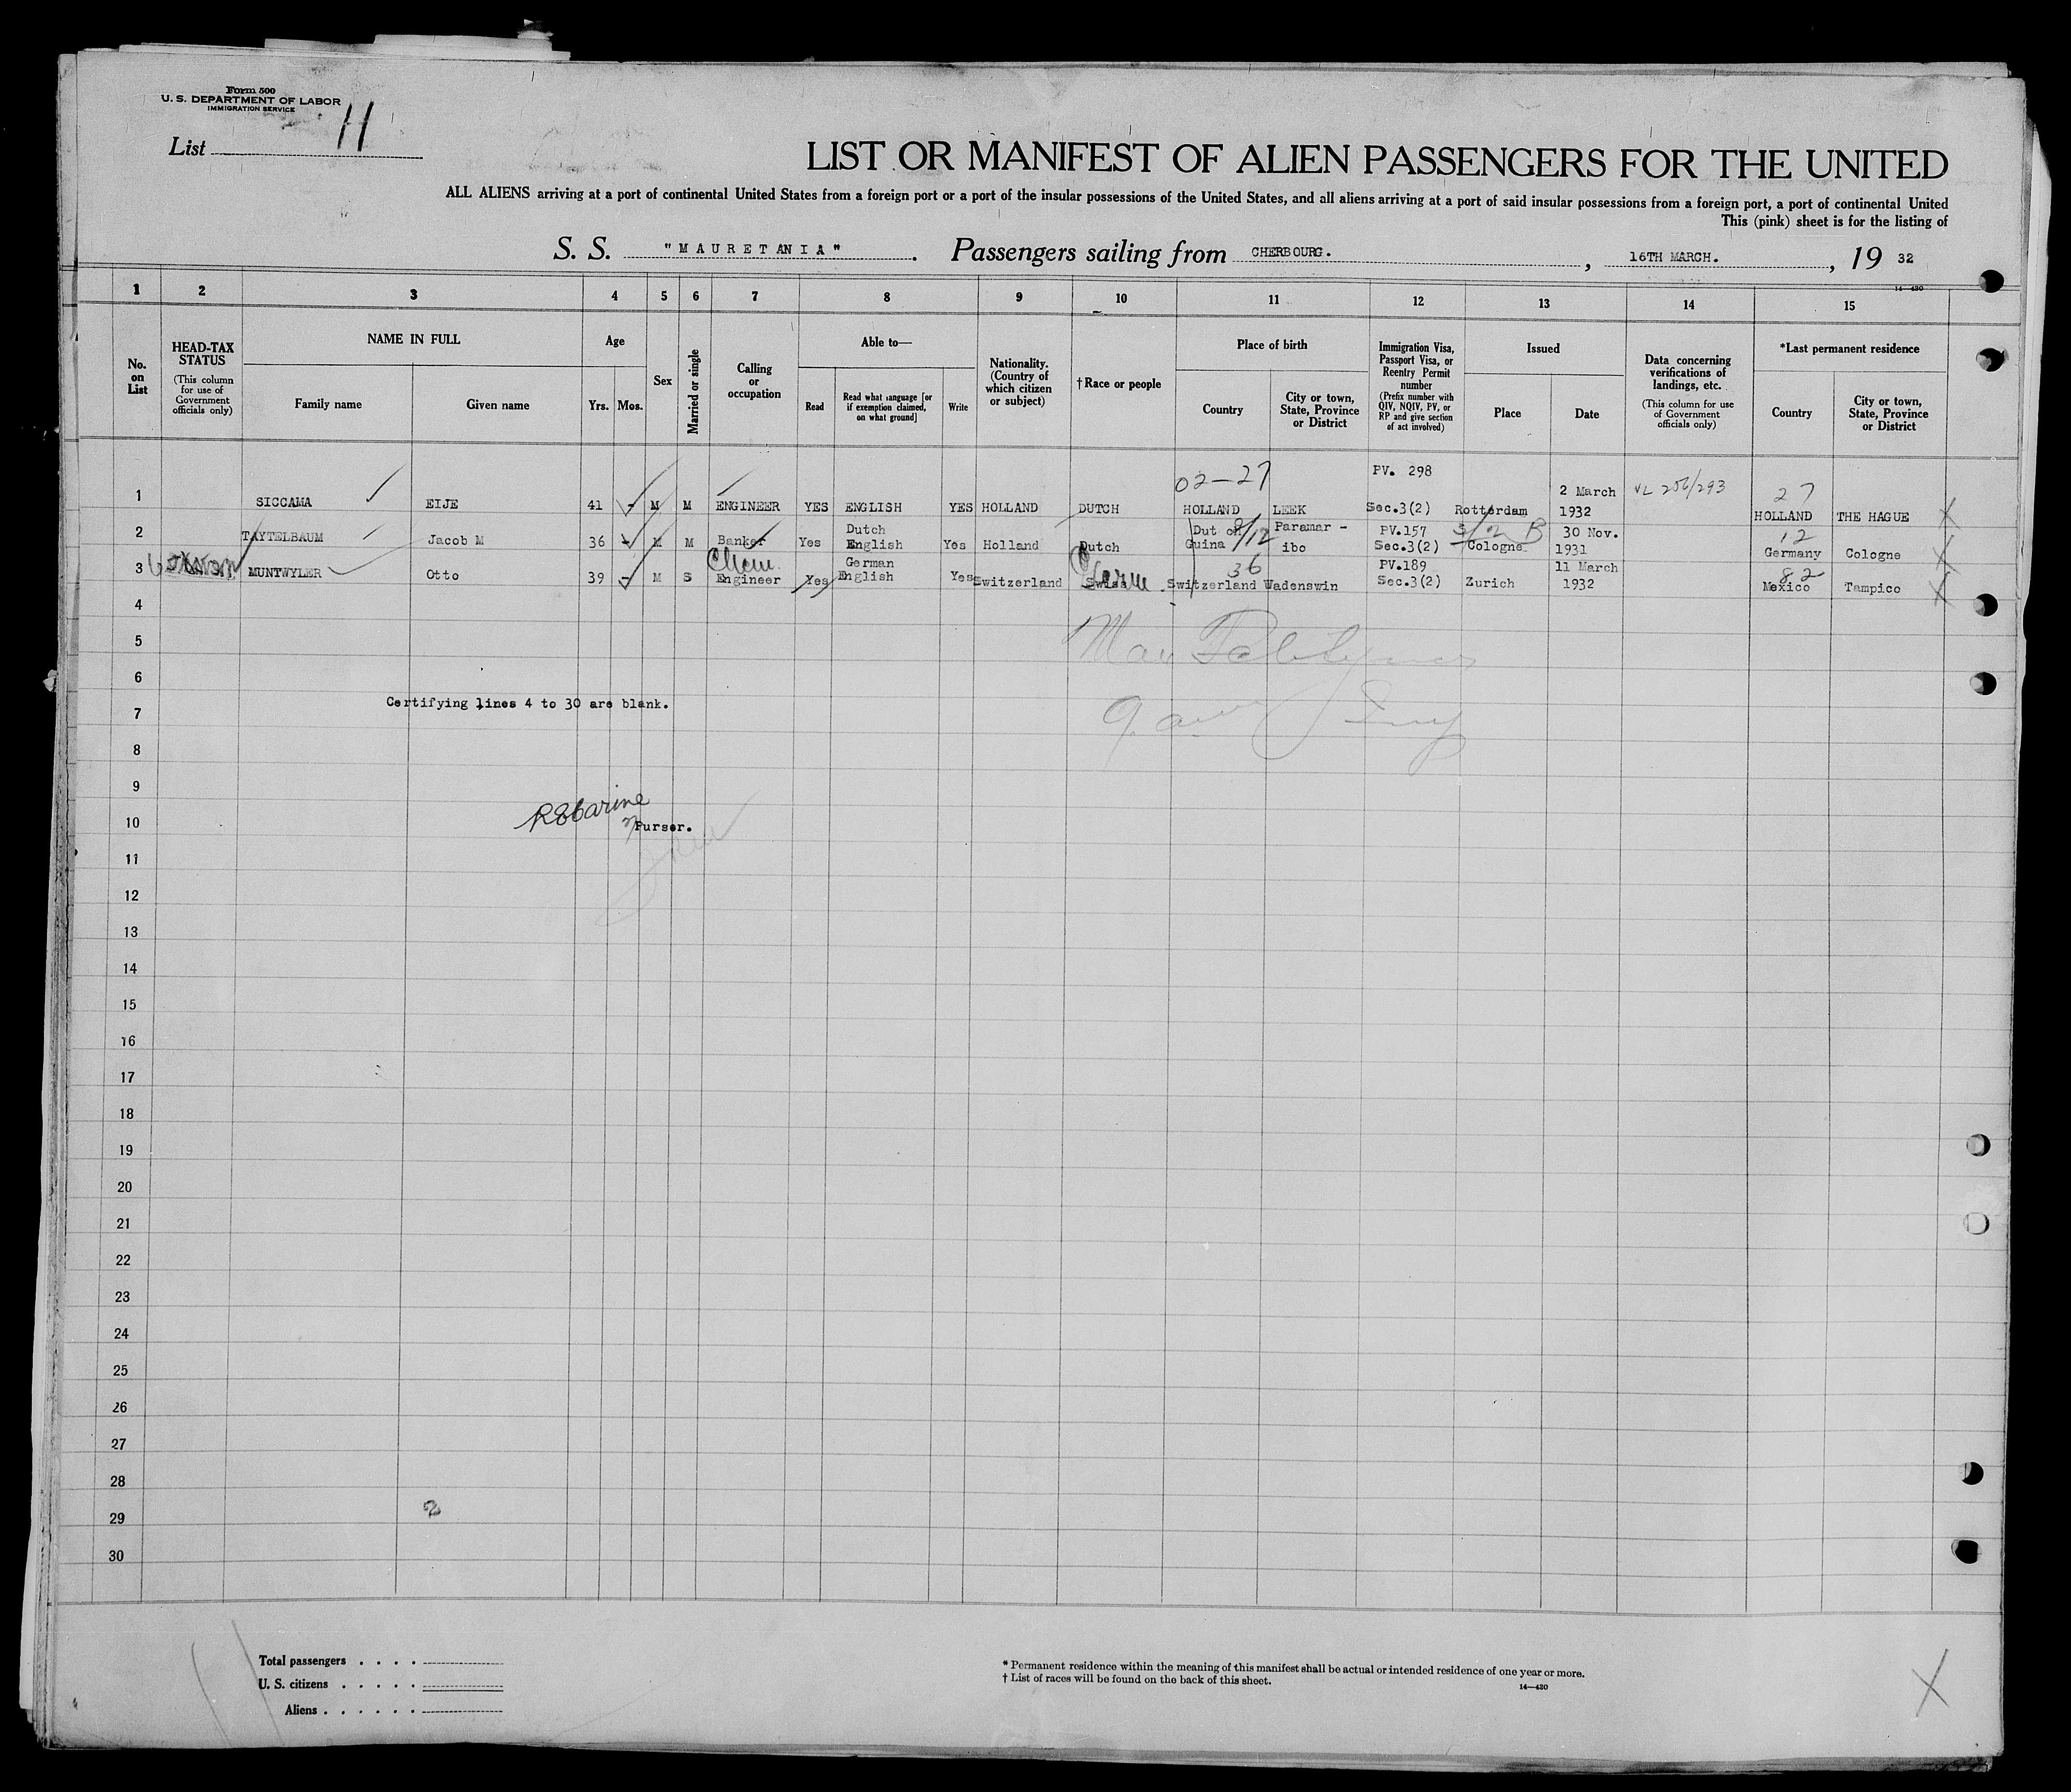 Form 500
U. S. DEPARTMENT OF LABOR
IMMIGRATION SERVICE
List 11
LIST OR MANIFEST OF ALIEN PASSENGERS FOR THE UNITED
ALL ALIENS arriving at a port of continental United States from a foreign port or a port of the insular possessions of the United States, and all aliens arriving at a port of said insular possessions from a foreign port, a port of continental United
This (pink) sheet is for the listing of
S. S. "MAURETANIA". Passengers sailing from CHERBOURG. , 16TH MARCH. , 19 32
14—430
1 2 3 4 5 6 7 8 9 10 11 12 13 14 15
No. on List
HEAD-TAX STATUS
(This column for use of Government officials only)
NAME IN FULL
Family name
Given name
Age
Yrs. Mos.
Sex
Married or single
Calling or occupation
Able to—
Read
Read what language [or if exemption claimed, on what ground]
Write
Nationality. (Country of which citizen or subject)
†Race or people
Place of birth
Country
City or town, State, Province or District
Immigration Visa, Passport Visa, or Reentry Permit number
(Prefix number with QIV, NQIV, PV, or RP and give section of act involved)
Issued
Place
Date
Data concerning verifications of landings, etc.
(This column for use of Government officials only)
*Last permanent residence
Country
City or town, State, Province or District
02-27 PV. 298
1 SICCAMA EIJE 41 - M M ENGINEER YES ENGLISH YES HOLLAND DUTCH HOLLAND LEEK Sec.3(2) Rotterdam 2 March 1932 VL 256/293 27 HOLLAND THE HAGUE X
2 TAYTELBAUM Jacob M 36 - M M Banker Yes Dutch English Yes Holland Dutch Dutch Guina 9/12 Paramar - ibo PV.157 Sec.3(2) Cologne 30 Nov. 1931 12 Germany Cologne X
3 MUNTWYLER Otto 39 - M S Chem. Engineer Yes German English Yes Switzerland Swiss Germ 36 Switzerland Wadenswin PV.189 Sec.3(2) Zurich 11 March 1932 82 Mexico Tampico X
4
5
6
Certifying lines 4 to 30 are blank.
7
8
9
10 Purser.
11
12
13
14
15
16
17
18
19
20
21
22
23
24
25
26
27
28
29
2
30
Total passengers . . . .
U. S. citizens . . . . .
Aliens . . . . . .
* Permanent residence within the meaning of this manifest shall be actual or intended residence of one year or more.
† List of races will be found on the back of this sheet.
14—430
X